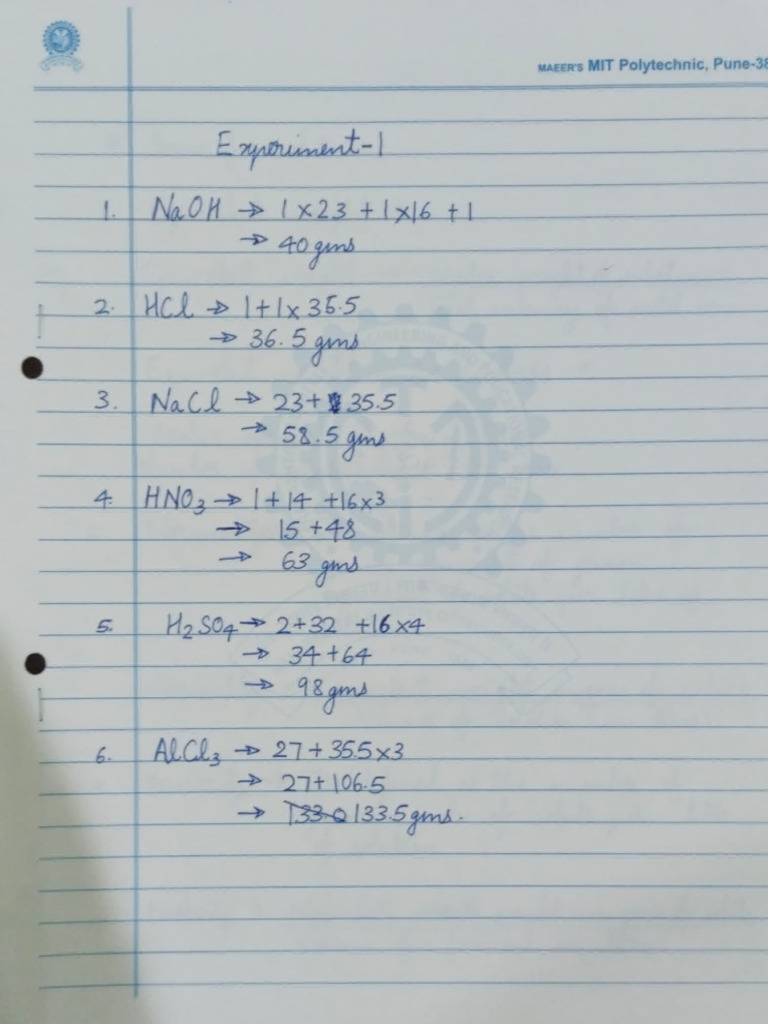 MAEER'S MIT Polytechnic, Pune-38
Experiment-1
1. NaOH → 1×23 + 1×16 + 1
→ 40 gms
2. HCl → 1+1×35.5
→ 36.5 gms
3. NaCl → 23+ 35.5
→ 58.5 gms
4. HNO₃ → 1+14 +16×3
→ 15 +48
→ 63 gms
5. H₂SO₄ → 2+32 +16×4
→ 34+64
→ 98gms
6. AlCl₃ → 27+35.5×3
→ 27+106.5
→ 133.0 133.5gms.